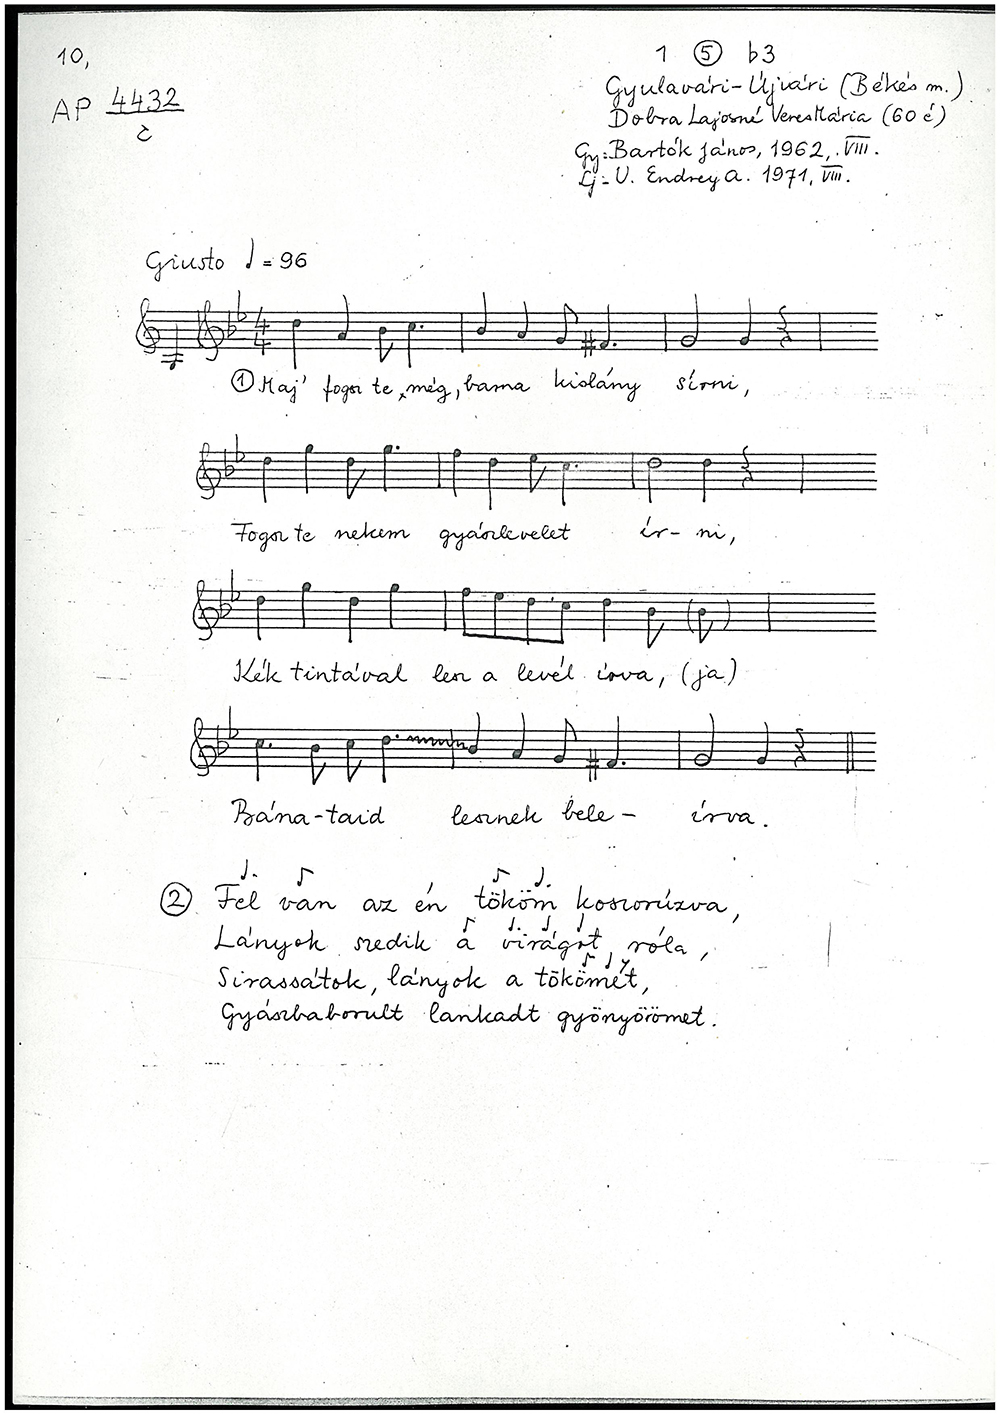 10,
1 ⑤ ♭3
AP 4432
Gyulavári-Újvári (Békés m.)
Dobra Lajosné Veres Mária (60 é)
Gy: Bartók János, 1962, VIII.
Lj: V. Endrey A. 1971, VIII.
Giusto ♩ = 96
① Maj' fogsz te, még, barna kislány sírni,
Fogsz te nekem gyászlevelet ír- ni,
Kék tintával lesz a levél írva, (ja)
Bána-taid lesznek bele- írva.
② Fel van az én tököm koszorúzva,
Lányok szedik a virágot róla,
Sirassátok, lányok a tökömét,
Gyászbaborult lankadt gyönyörömet.